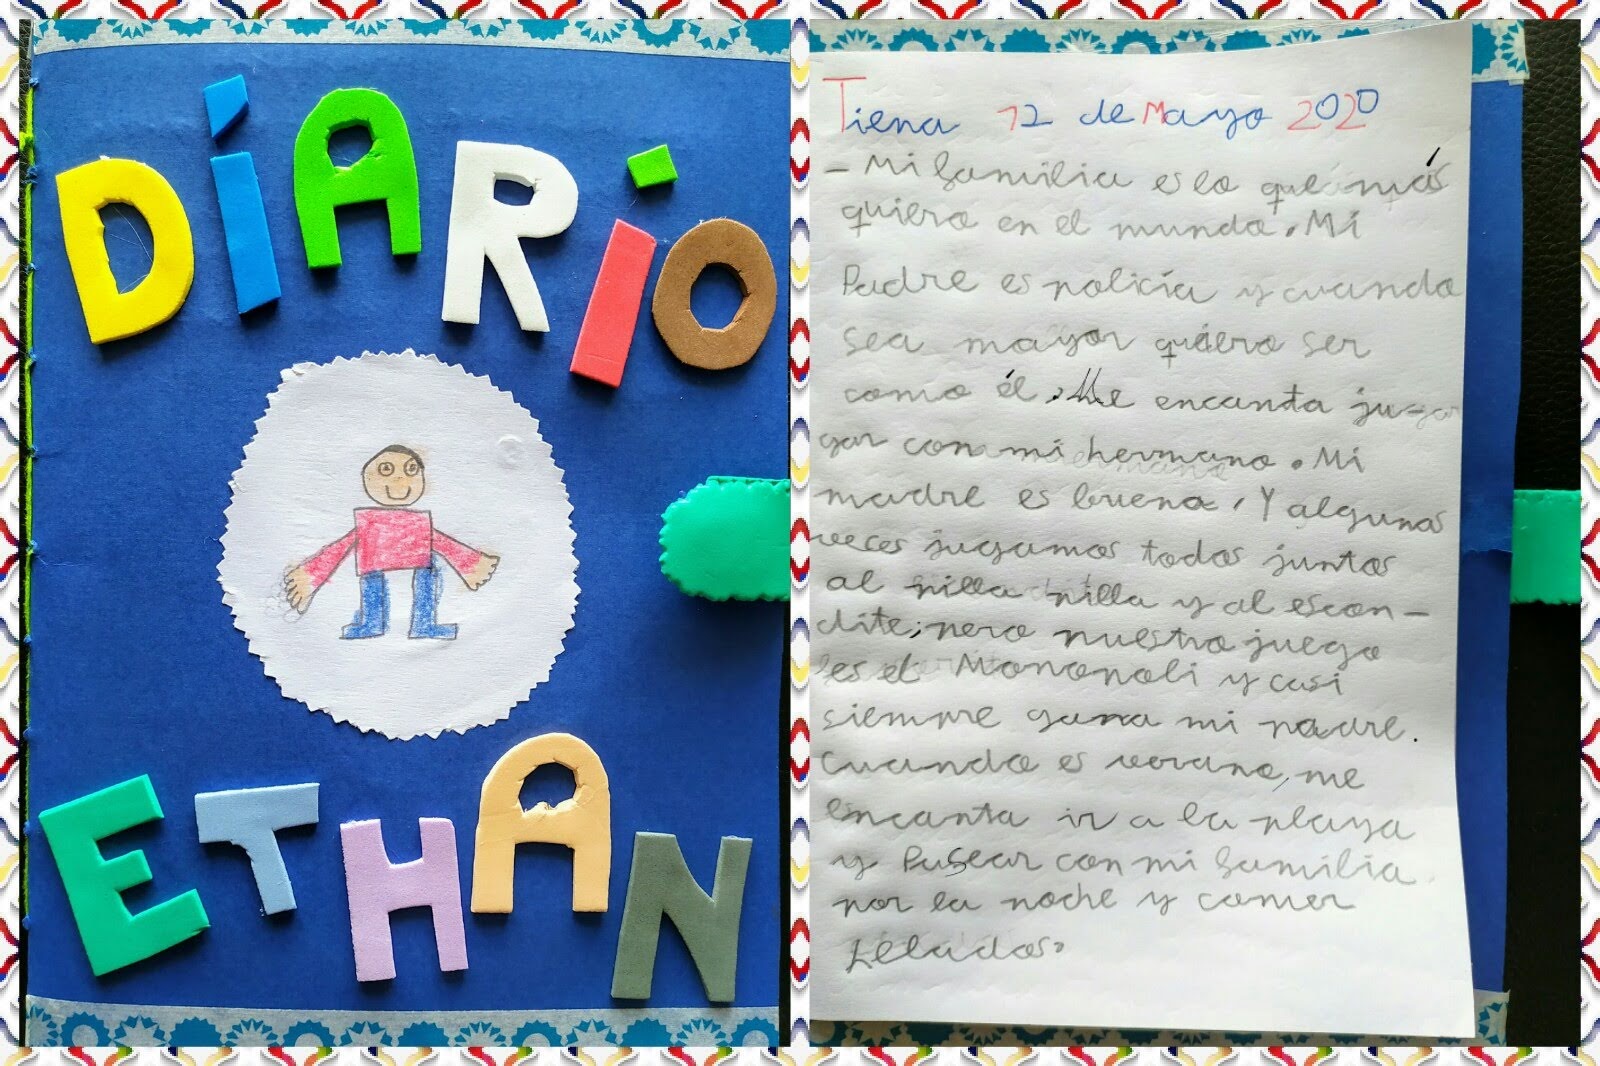 DÍARIO
ETHAN
Tiena 12 de Mayo 2020
- Mi familia es lo que más
quiero en el mundo. Mi
Padre es policía y cuando
sea mayor quiero ser
como él. Me encanta ju-
gar con mi hermano. Mi
madre es buena, Y algunas
veces jugamos todos juntos
al pilla pilla y al escon-
dite; pero nuestro juego
es el Monopoli y casi
siempre gana mi padre.
Cuando es verano, me
encanta ir a la playa
y Pasear con mi familia
por la noche y comer
helados.